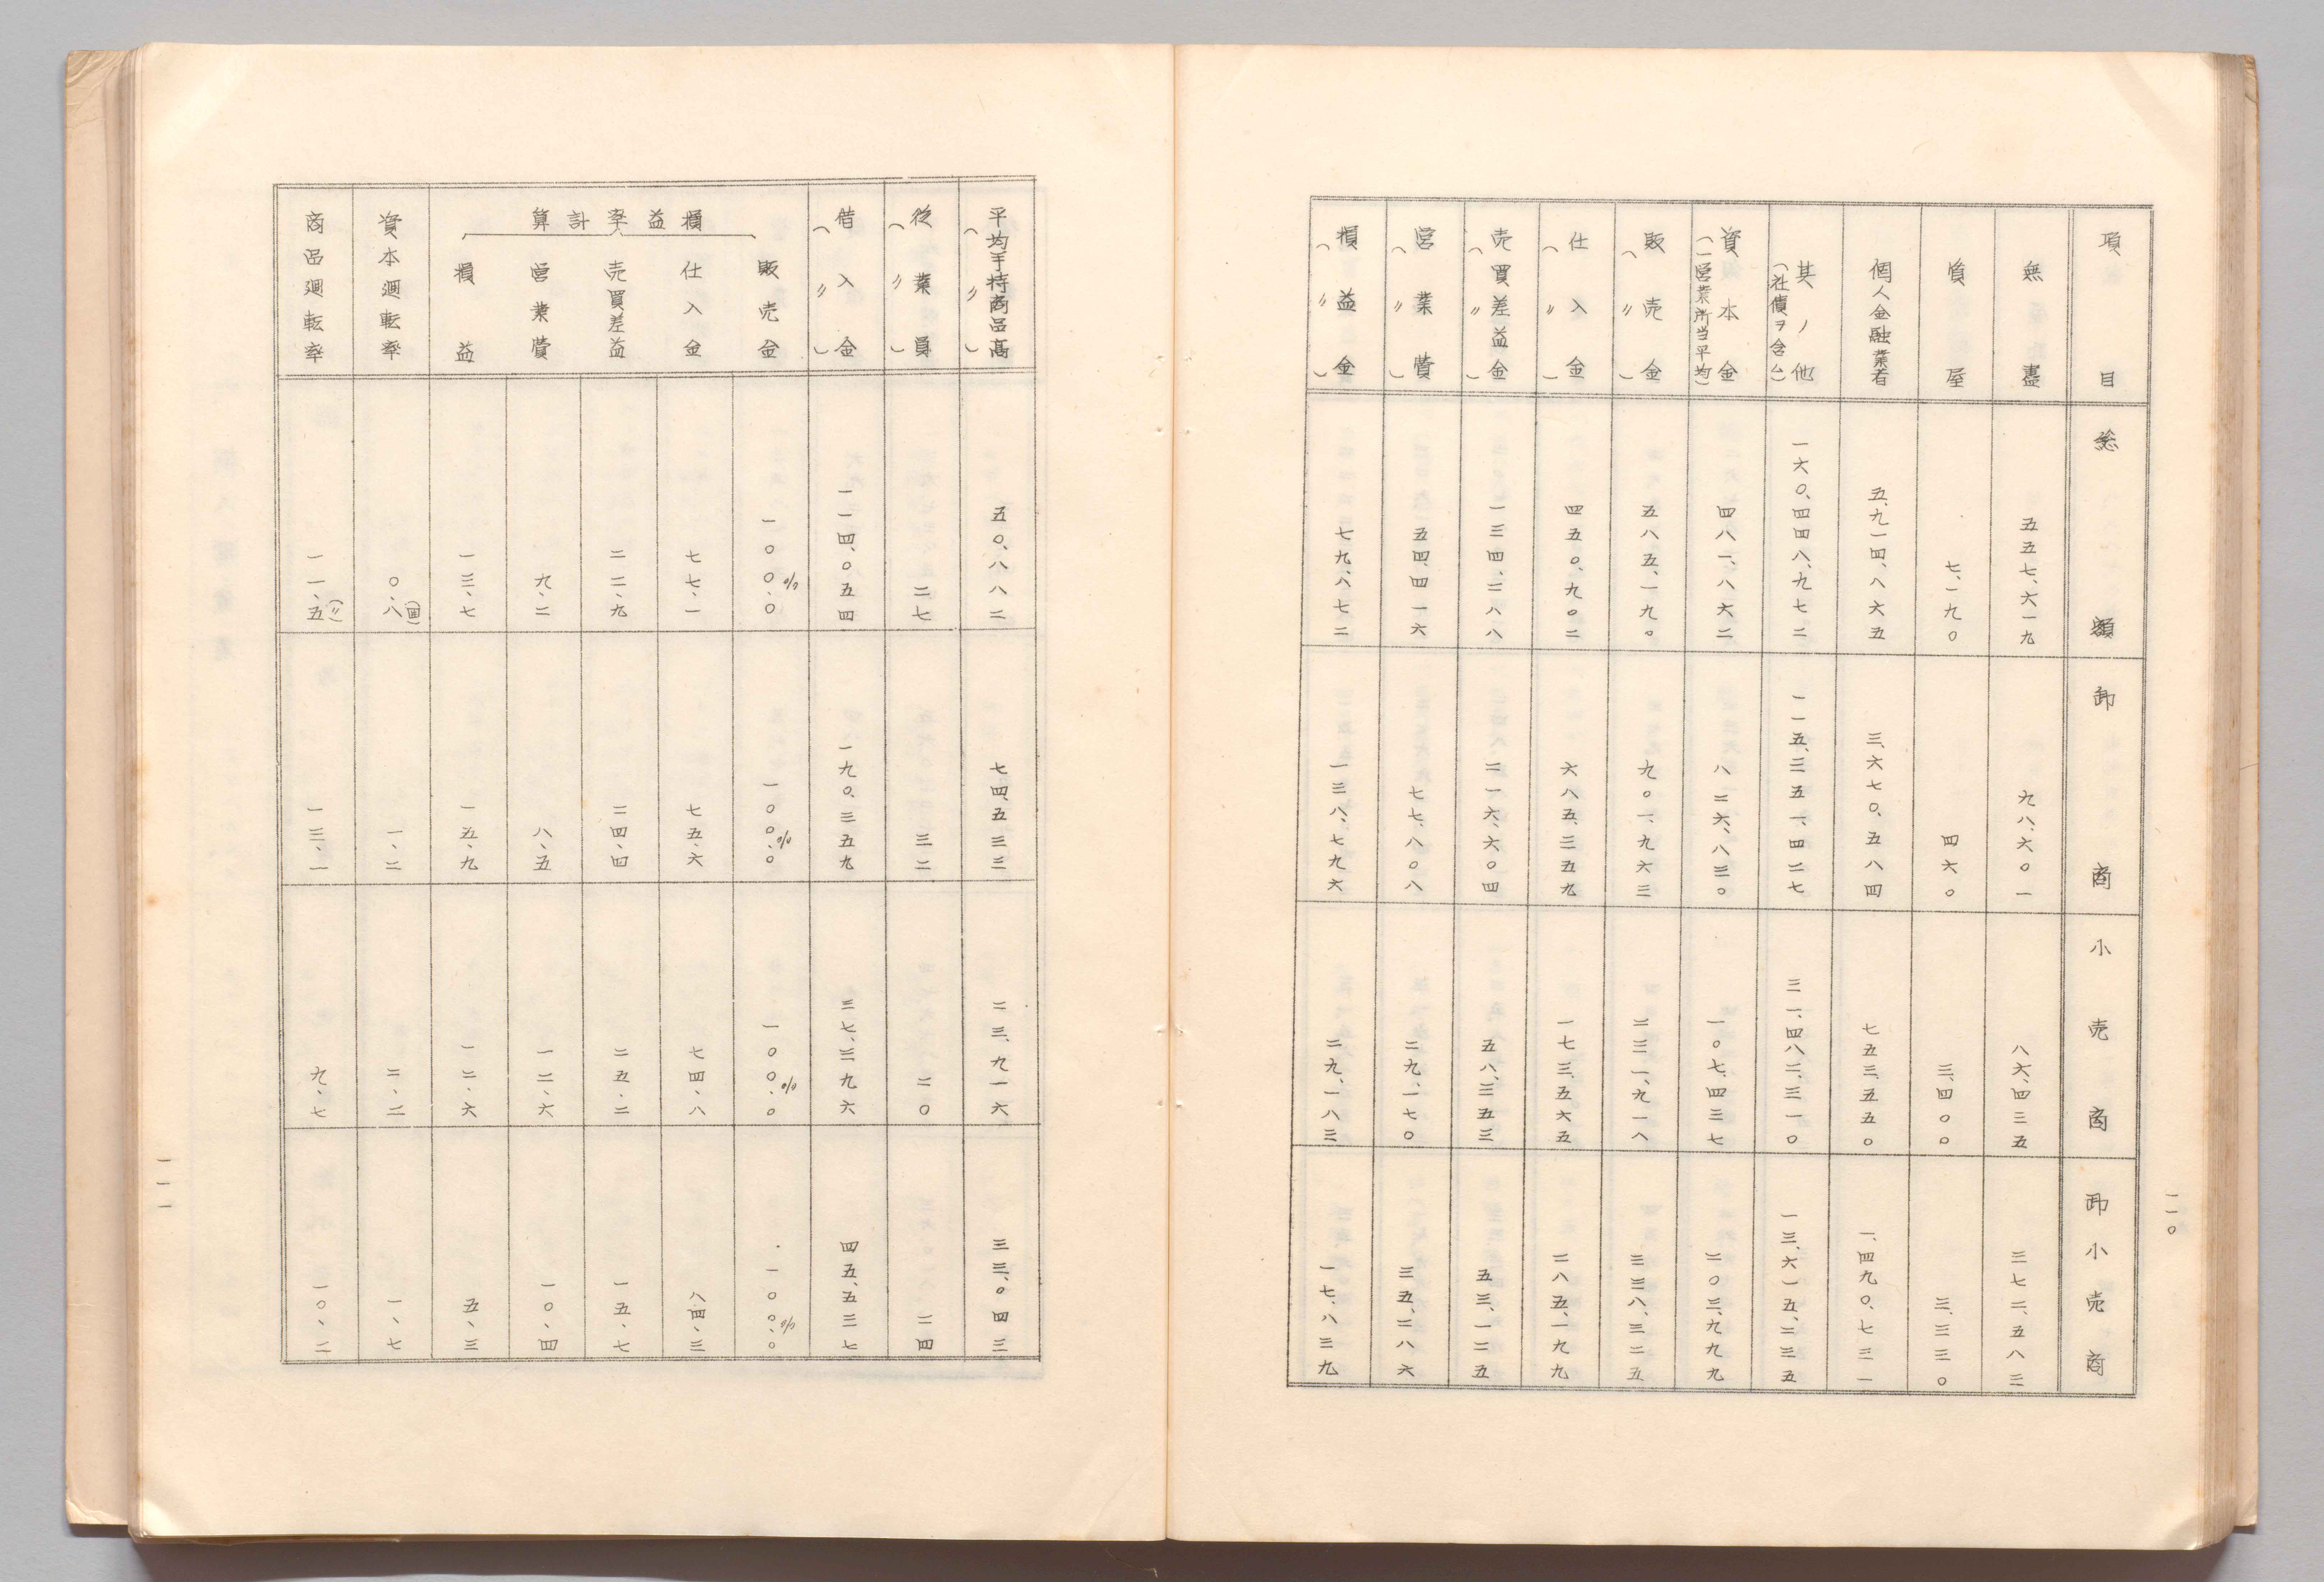 一一〇
項目 総額 卸商 小売商 卸小売商
無盡 五五七、六一九 九八、六〇一 八六、四三五 三七二、五八三
質屋 七、一九〇 四六〇 三、四〇〇 三、三三〇
個人金融業者 五、九一四、八六五 三、六七〇、五八四 七五三、五五〇 一、四九〇、七三一
其ノ他(社債ヲ含ム) 一六〇、四四八、九七二 一一五、三五一、四二七 三一、四八二、三一〇 一三、六一五、二三五
資本金(一営業所当平均) 四八一、八六二 八二六、八三〇 一〇七、四三七 二〇三、九九九
販売金(〃) 五八五、一九〇 九〇一、九六三 二三一、九一八 三三八、三二五
仕入金(〃) 四五〇、九〇二 六八五、三五九 一七三、五六五 二八五、一九九
売買差益金(〃) 一三四、二八八 二一六、六〇四 五八、三五三 五三、一二五
営業費(〃) 五四、四一六 七七、八〇八 二九、一七〇 三五、二八六
損益金(〃) 七九、八七二 一三八、七九六 二九、一八三 一七、八三九
平均手持商品高(〃) 五〇、八八二 七四、五三三 二三、九一六 三三、〇四三
従業員(〃) 二七 三二 二〇 二四
借入金(〃) 一一四、〇五四 一九〇、三五九 三七、三九六 四五、五三七
損益率計算
販売金 一〇〇、〇% 一〇〇、〇% 一〇〇、〇% 一〇〇、〇%
仕入金 七七、一 七五、六 七四、八 八四、三
売買差益 二二、九 二四、四 二五、二 一五、七
営業費 九、二 八、五 一二、六 一〇、四
損益 一三、七 一五、九 一二、六 五、三
資本廻転率 〇、八(回) 一、二 二、二 一、七
商品廻転率 一一、五(〃) 一三、一 九、七 一〇、二
一一一